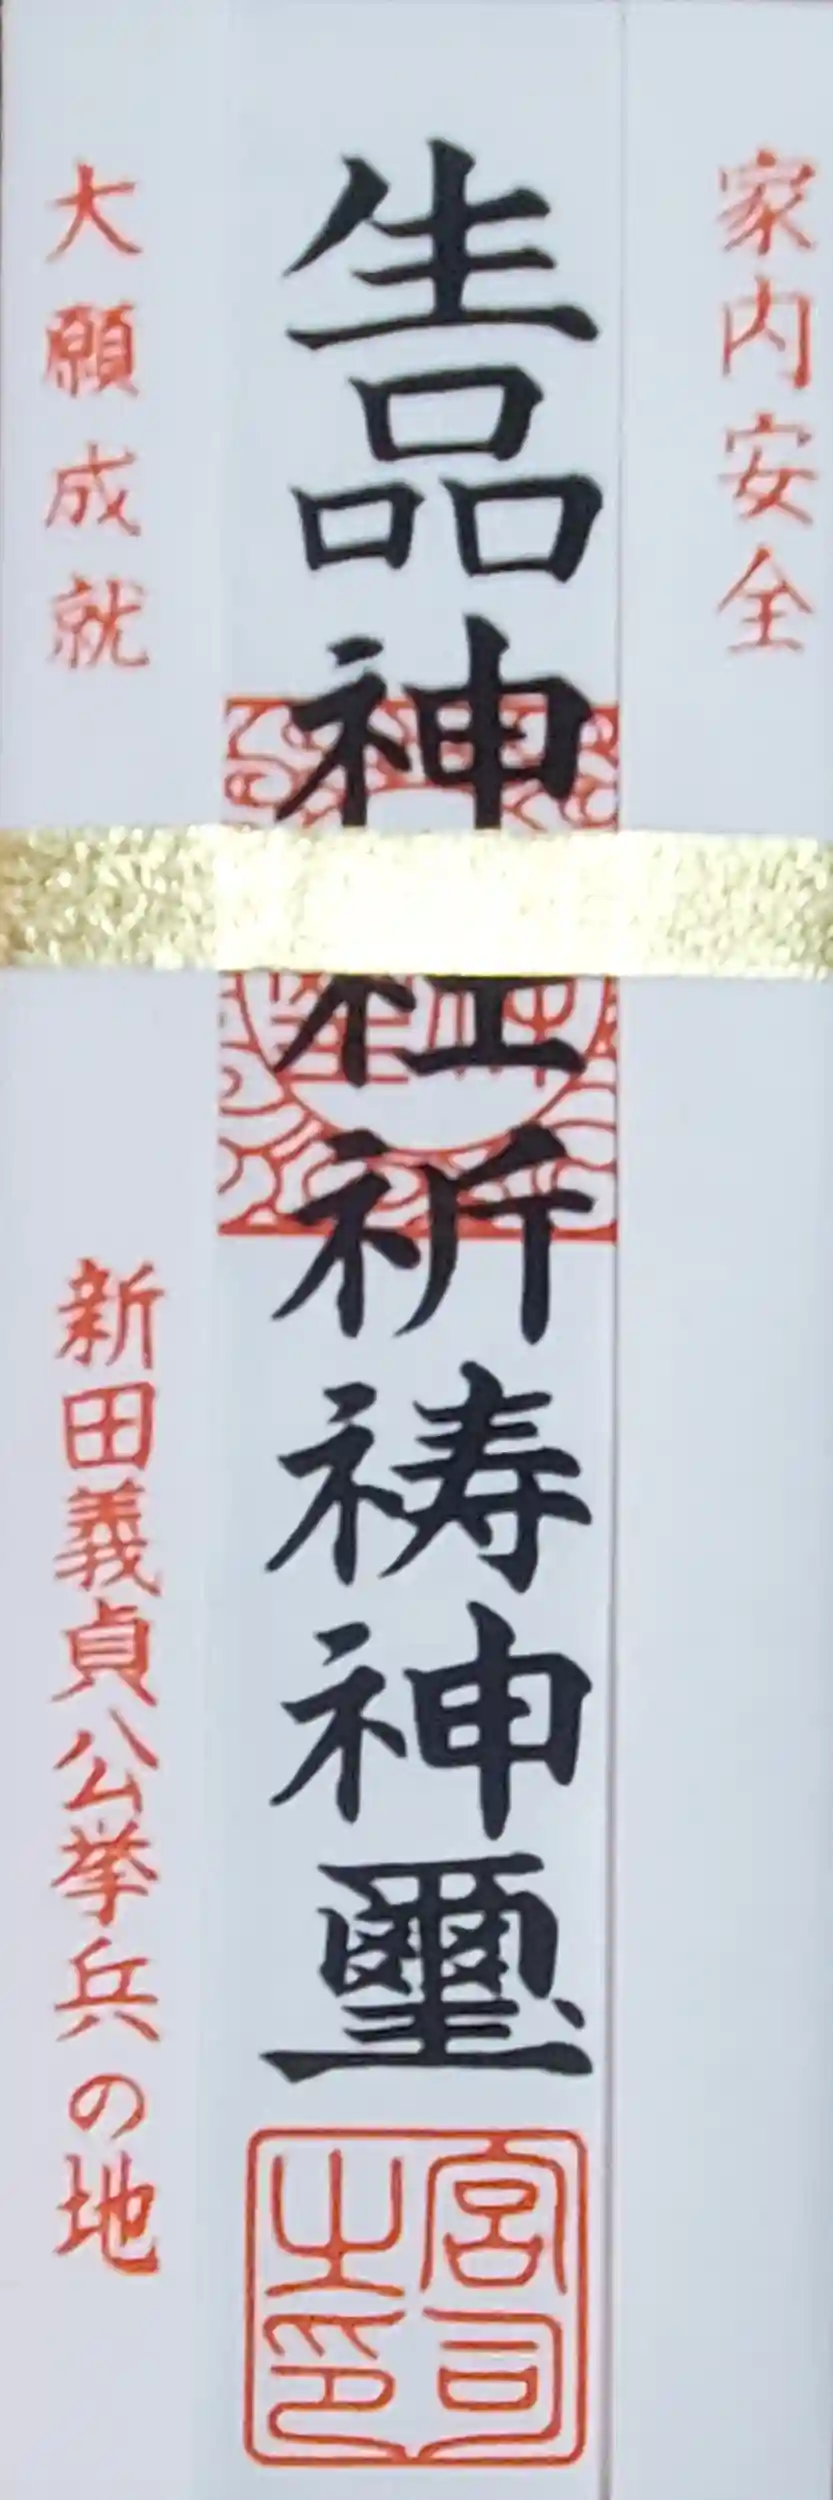 家内安全
生品神社祈祷神璽
宮司之印
大願成就
新田義貞公挙兵の地